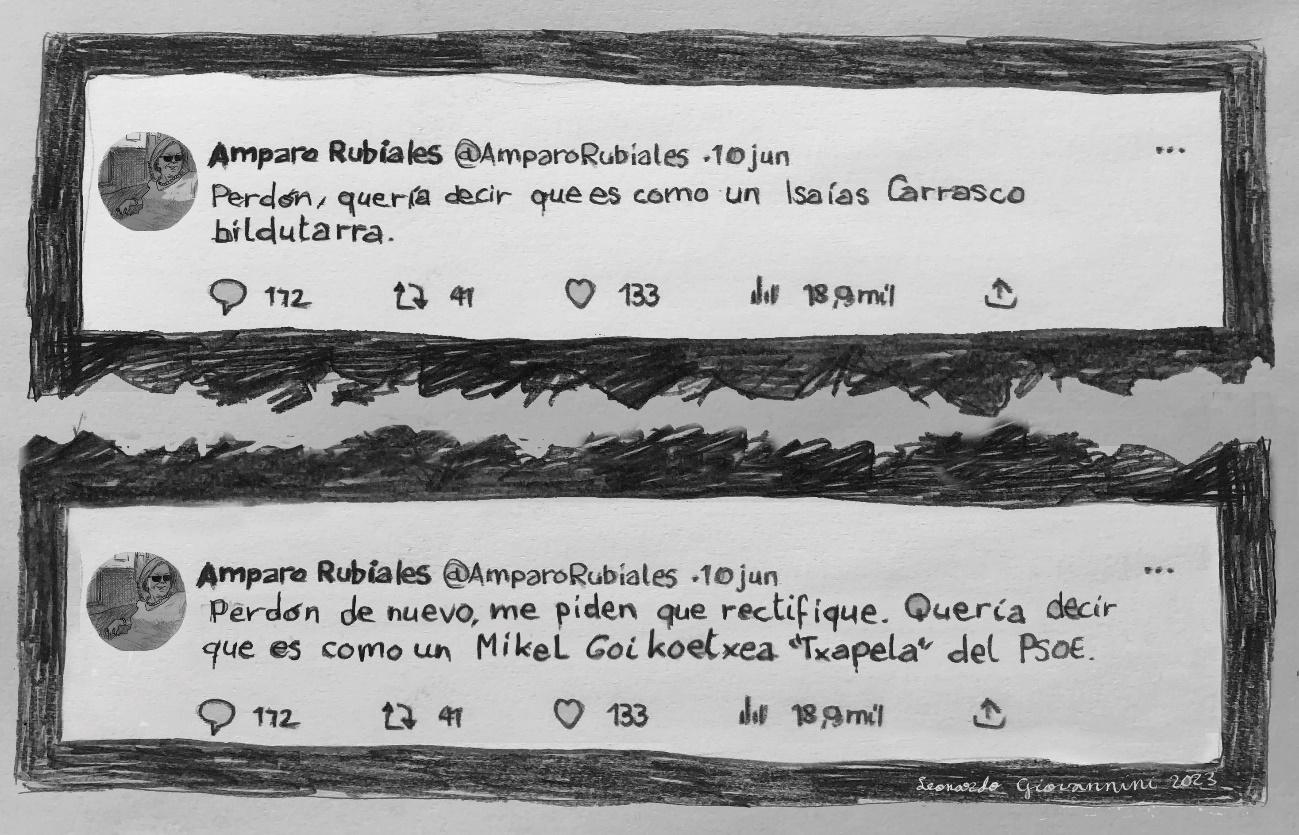 Amparo Rubiales @AmparoRubiales ·10 jun
Perdón, quería decir que es como un Isaías Carrasco
bildutarra.
172 41 133 18,9 mil
Amparo Rubiales @AmparoRubiales ·10 jun
Perdón de nuevo, me piden que rectifique. Quería decir
que es como un Mikel Goikoetxea "Txapela" del PSOE.
172 41 133 18,9 mil
Leonardo Giovannini 2023